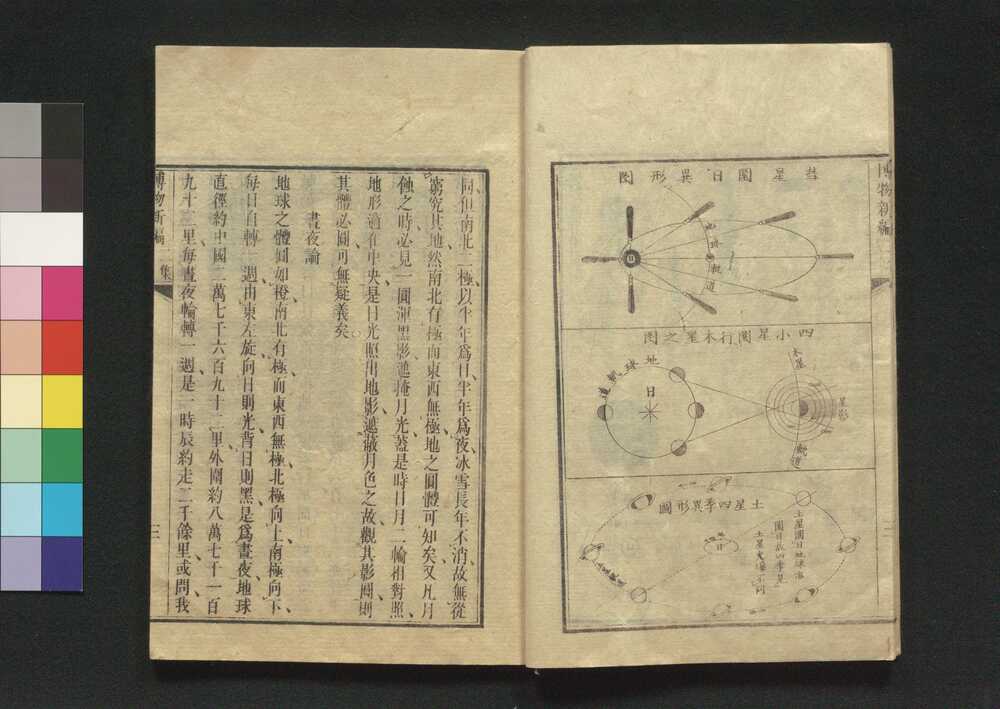 博物新編
彗星圜日異形圖
地球軌道
四小星圜行木星之圖
地球軌道
日
木星
星影
軌道
土星四季異形圖
日
土星圜日地球亦
圜日故四季見
同但南北二極以半年爲日半年爲夜冰雪長年不消故無從
窮究其地然南北有極而東西無極地之圓體可知矣又凡月
蝕之時必見一圓渾黑影遮掩月光蓋是時日月二輪相對照
地形適在中央是日光照出地影遮蔽月色之故觀其影圓則
其體必圓可無疑義矣
晝夜論
地球之體圓如橙南北有極而東西無極北極向上南極向下
每日自轉一週由東左旋向日則光背日則黑是爲晝夜地球
直徑約中國二萬七千六百九十二里外圍約八萬七千一百
九十二里每晝夜輪轉一週是一時辰約走二千餘里或問我
博物新編
二集
三